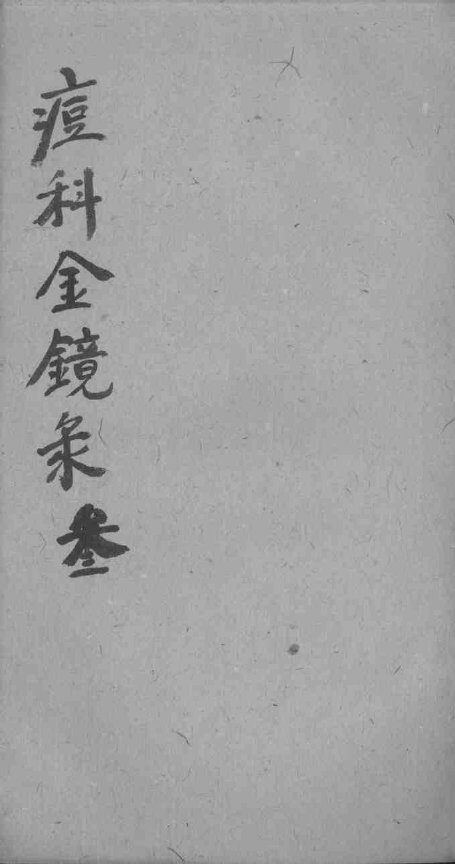 痘科金鏡彔叁